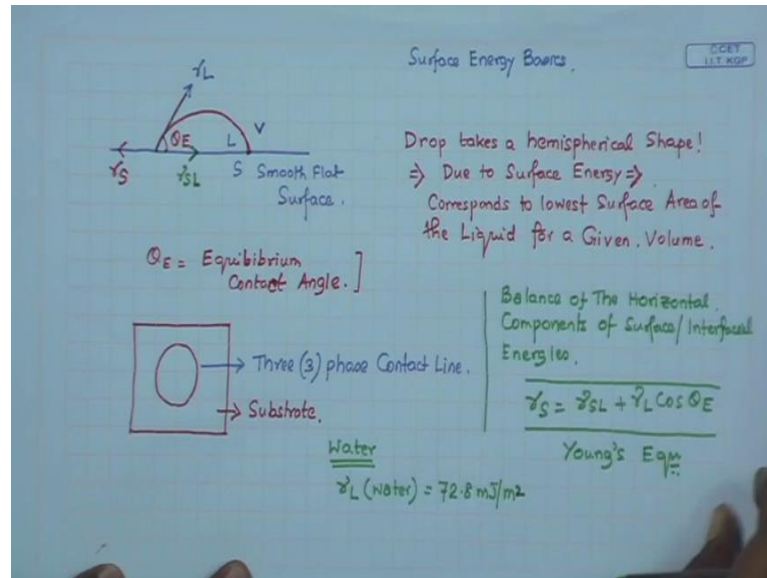 Surface Energy Basics.
CCET
I.I.T. KGP
γL
θE
L
V
γS
γSL
S Smooth Flat
Surface.
Drop takes a hemispherical Shape!
⇒ Due to Surface Energy ⇒
Corresponds to lowest Surface Area of
the Liquid for a Given. Volume.
θE = Equibibrium
Contact Angle. ]
Balance of The Horizontal
Components of Surface/Interfacial
Energies.
γS = γSL + γL Cos θE
Young's Eqn
Three (3) phase Contact Line.
Substrate.
Water
γL (water) = 72.8 mJ/m2